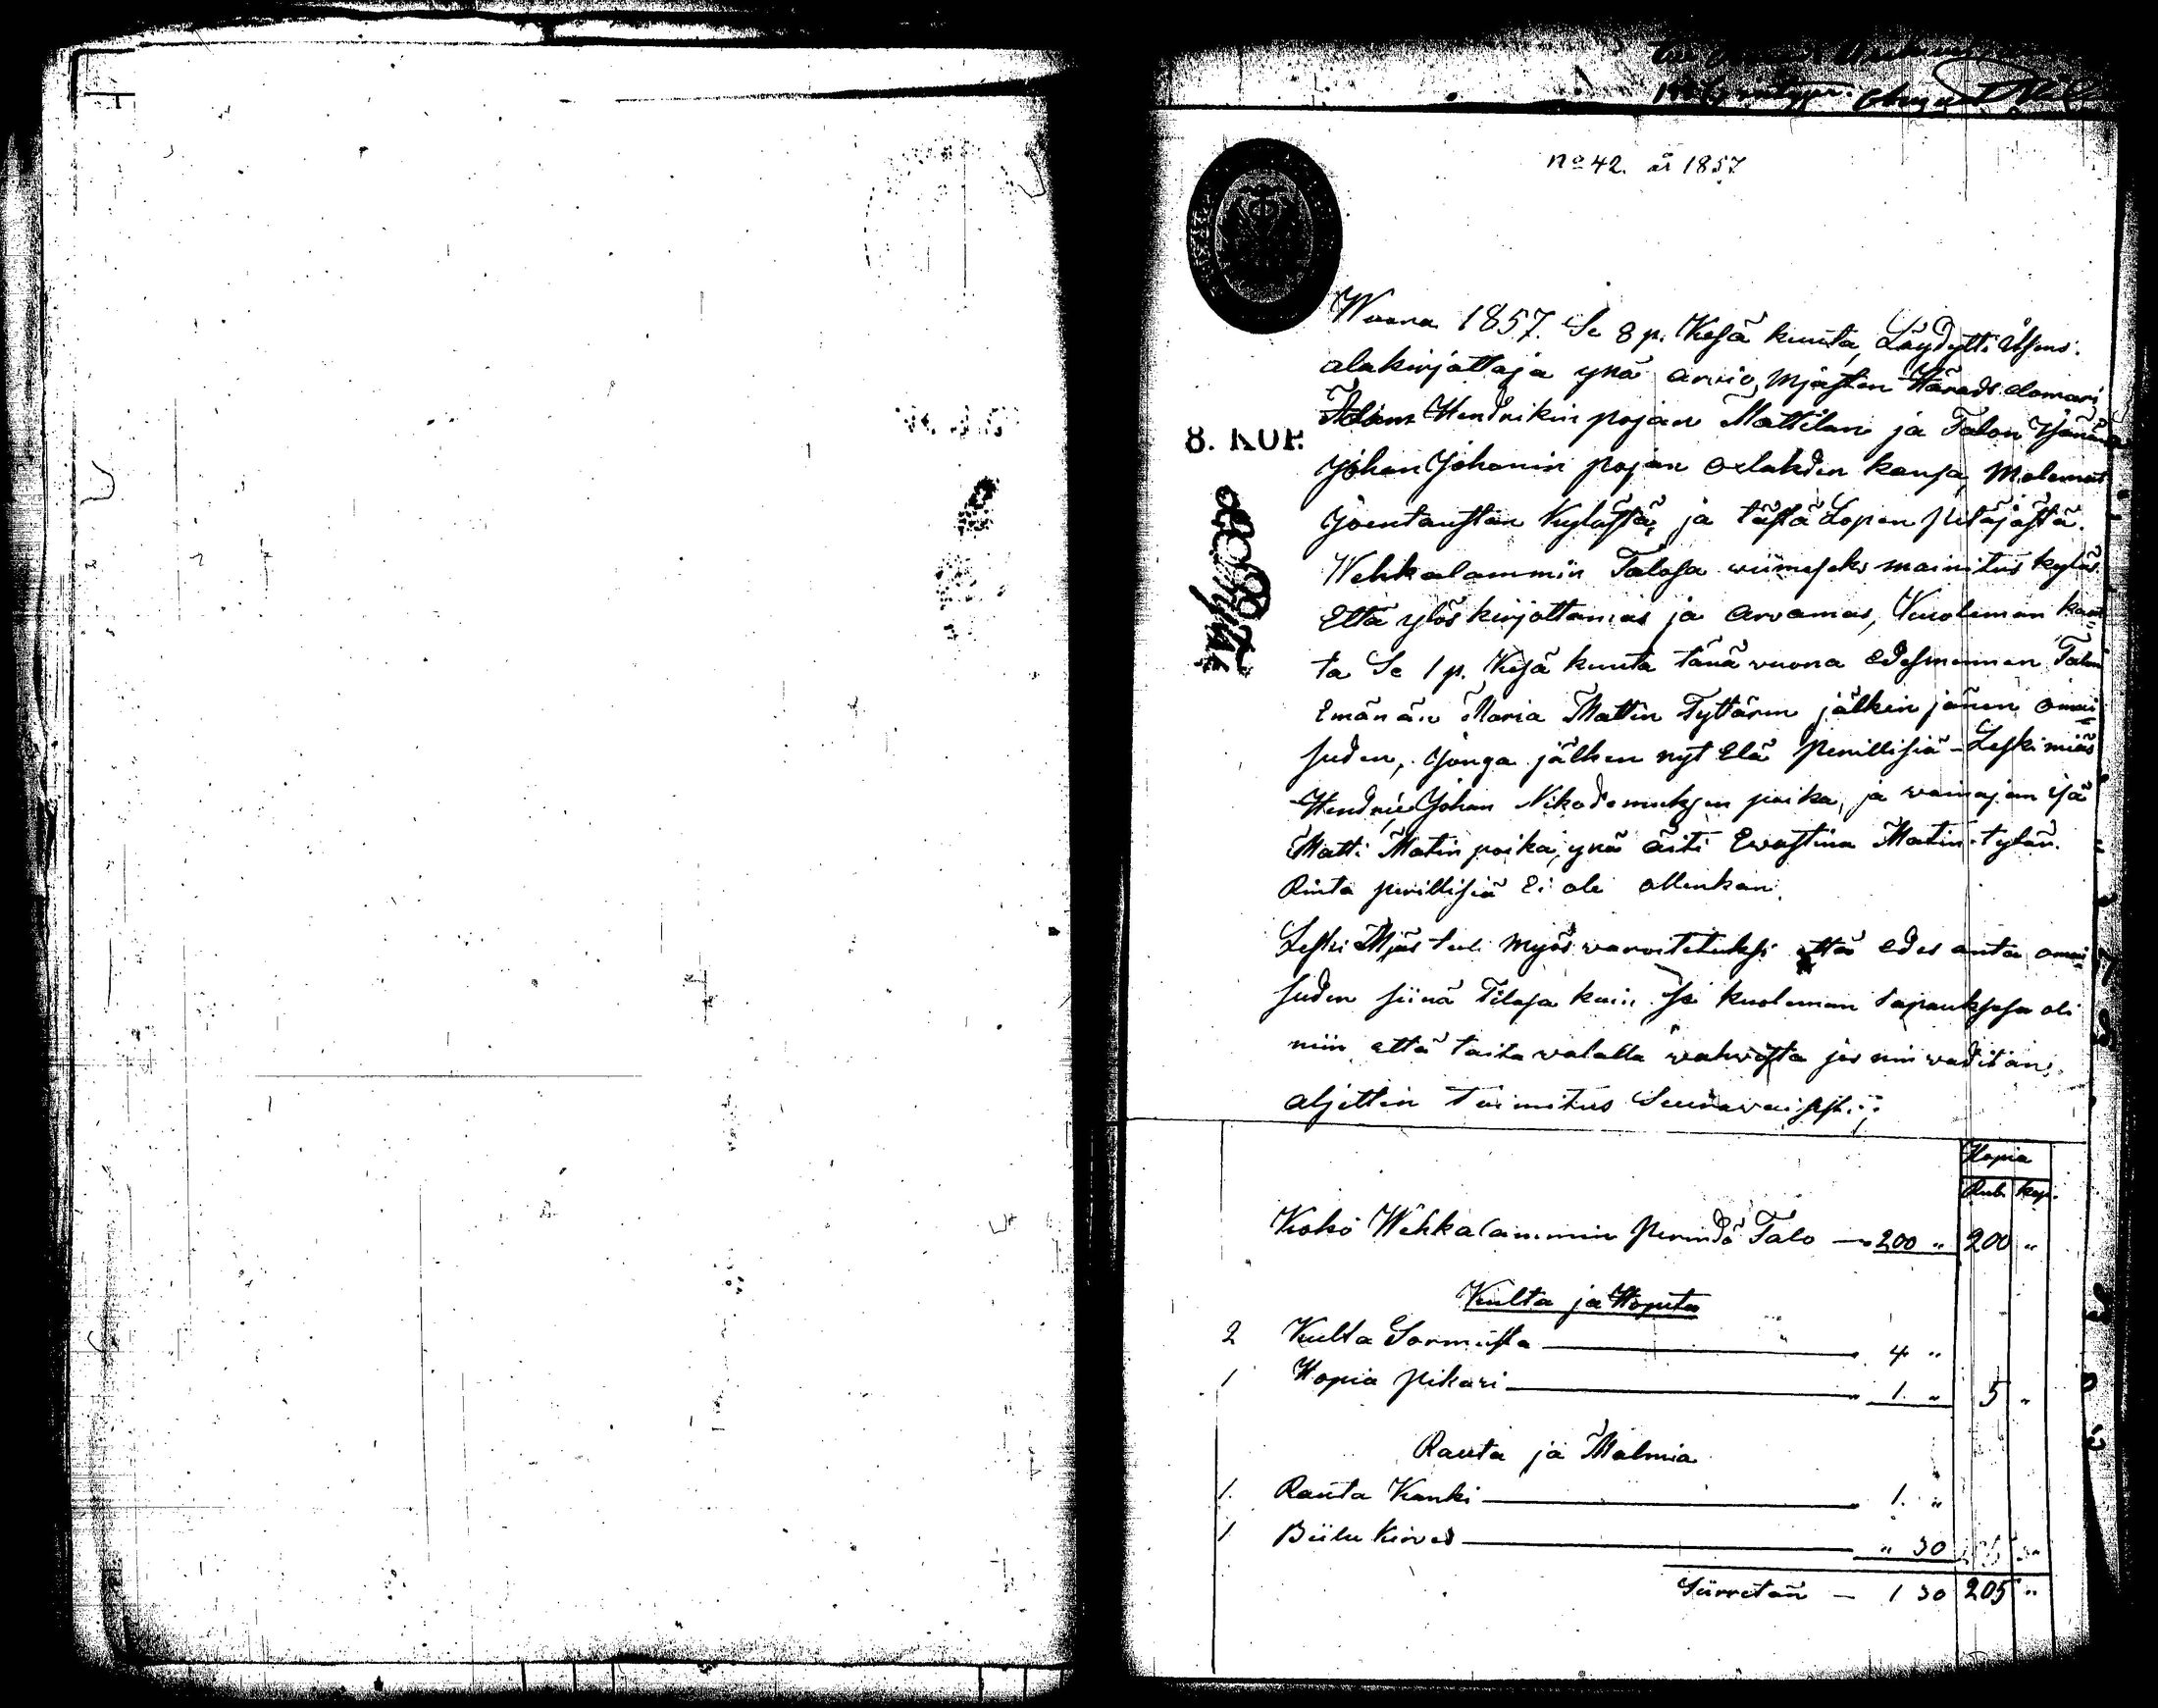 No 42. år 1857
8. KOP.
Wuona 1857. Se 8 p. Kesä kuuta, Löydytti itsens.
alakirjattaja ynä arvio Mjästen Härads domari
Adam Hendrikin pojan Mattilan ja Talon Isänän
Johan Johanin pojan oxlahden kansa, Molemat
Joentaustan Kylästä, ja tästä Lopen pitäjästä.
Wehkalammin Talosa wiimeseks mainitus kyläs.
Että ylös kirjottamas ja arvamas, Kuoleman kaut
ta Se 1 p. Kesä kuuta tänä vuona edesmennen Talon
Emänän Maria Mattin Tyttären jälkin jänen omai
suden, Jonga jälken nyt Elä perillisiä - Leskimiäs
Hendric Johan Nikodemuksen poika, ja vainajan isä
Matti Matin poika, ynä äiti Evastina Matin tytär.
Rinta perillisiä Ei ole ollenkan.
Leski Mjäs tuli myös varoitetuksi että edes anta omai
suden siinä Tilasa kuin se kuoleman tapauksesa oli
niin että taita valalla wahwista jos nin vaditan,
aljettin toimitus Seuravaisest.;
Hopia
Rub. kop.
Koko Wehkalammin perindö Talo — 200 " 200 "
Kulta ja Hopita
2 Kulta Sormusta — 4 "
1 Hopia pikari — 1. " 5 "
Rauta ja Malmia
1. Rauta Kanki — 1. "
1 Biilu kirves — " 30
Siirretän — 1 30 205 "